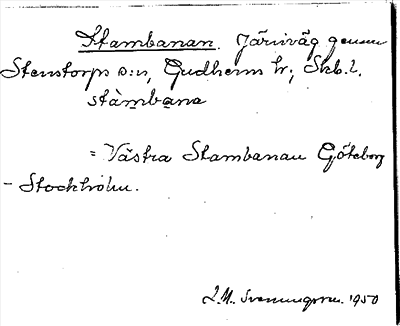 Stambanan. Järnväg genom
Stenstorps s:n, Gudhems hr; Skb. l.
stàmbana
= Västra Stambanan Göteborg
- Stockholm.
1950